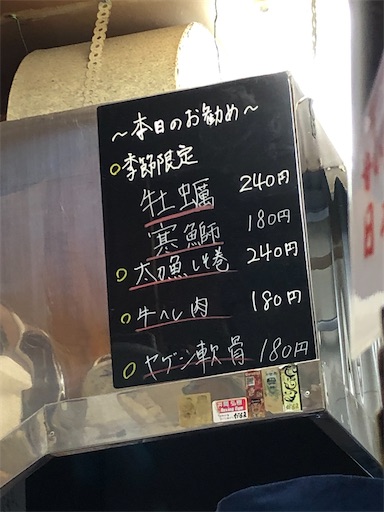 ～本日のお勧め～
季節限定
牡蠣 240円
寒鰤 180円
太刀魚しそ巻 240円
牛ヘレ肉 180円
ヤゲン軟骨 180円